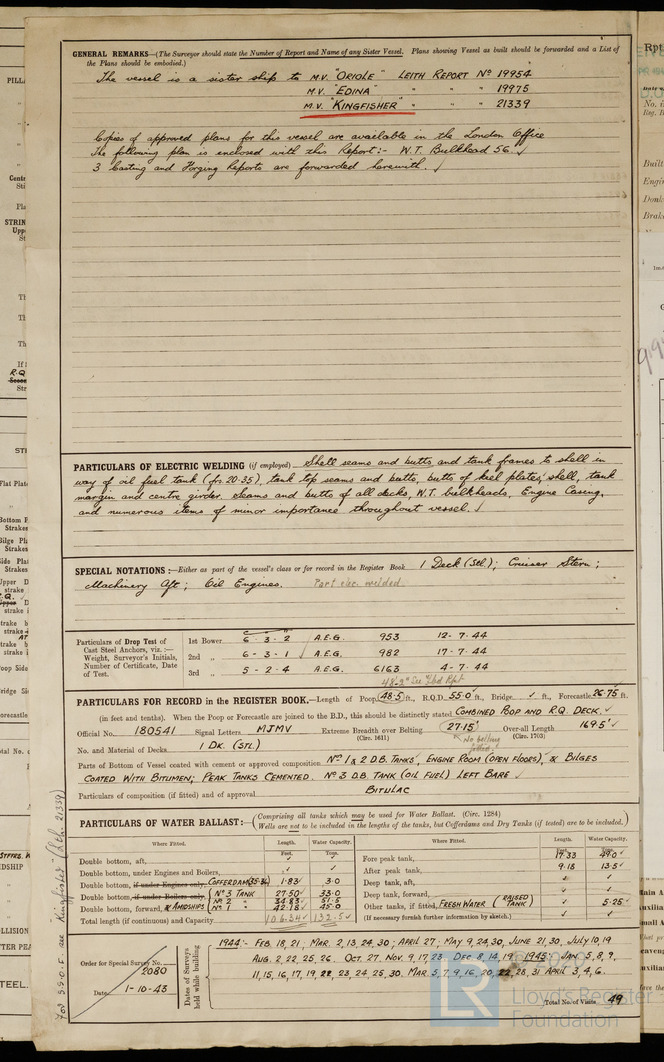 GENERAL REMARKS—(The Surveyor should state the Number of Report and Name of any Sister Vessel. Plans showing Vessel as built should be forwarded and a List of
the Plans should be embodied.)
The vessel is a sister ship to M.V. "ORIOLE" LEITH REPORT No 19954
M.V. "EDINA" " " " 19975
M.V. "KINGFISHER" " " " 21339
Copies of approved plans for this vessel are available in the London Office
The following plan is enclosed with this Report:- W.T. Bulkhead 56. ✓
3 Casting and Forging Reports are forwarded herewith. ✓
PARTICULARS OF ELECTRIC WELDING (if employed) Shell seams and butts and tank frames to shell in
way of oil fuel tank (frs. 20-35), tank top seams and butts, butts of keel plates, shell, tank
margin and centre girder. Seams and butts of all decks, W.T. bulkheads, Engine Casing,
and numerous items of minor importance throughout vessel. ✓
SPECIAL NOTATIONS:—Either as part of the vessel's class or for record in the Register Book 1 Deck (Stl); Cruiser Stern;
Machinery Aft; Oil Engines. Part elec. welded.
Particulars of Drop Test of
Cast Steel Anchors, viz.:—
Weight, Surveyor's Initials,
Number of Certificate, Date
of Test.
1st Bower 6 - 3 - 2 A.E.G. 953 12 - 7 - 44
2nd " 6 - 3 - 1 A.E.G. 982 17 - 7 - 44
3rd " 5 - 2 - 4 A.E.G. 6163 4 - 7 - 44
PARTICULARS FOR RECORD in the REGISTER BOOK.—Length of Poop 48.5 ft., R.Q.D. 55.0 ft., Bridge ✓ ft., Forecastle 26.75 ft.
(in feet and tenths). When the Poop or Forecastle are joined to the B.D., this should be distinctly stated COMBINED POOP AND R.Q. DECK. ✓
Official No. 180541 Signal Letters MJMV Extreme Breadth over Belting 27.15' Over-all Length 169.5' ✓
(Circ. 1611) (Circ. 1703)
No belting fitted.
No. and Material of Decks 1 DK. (STL)
Parts of Bottom of Vessel coated with cement or approved composition Nos 1 & 2 D.B. TANKS, ENGINE ROOM (OPEN FLOORS), & BILGES
COATED WITH BITUMEN; PEAK TANKS CEMENTED. No 3 D.B. TANK (OIL FUEL) LEFT BARE ✓
Particulars of composition (if fitted) and of approval BITULAC
PARTICULARS OF WATER BALLAST:—(Comprising all tanks which may be used for Water Ballast. (Circ. 1284)
Wells are not to be included in the lengths of the tanks, but Cofferdams and Dry Tanks (if tested) are to be included.)
Where Fitted. Length. Water Capacity. Where Fitted. Length. Water Capacity.
Feet. Tons. Feet. Tons.
Double bottom, aft, ✓ ✓ Fore peak tank, 17.33 49.0 ✓
Double bottom, under Engines and Boilers, ✓ ✓ After peak tank, 9.18 13.5 ✓
Double bottom, if under Engines only, COFFERDAM (35-36) 1.83 3.0 Deep tank, aft, ✓ ✓
Double bottom, if under Boilers only, No 3 TANK 27.50 33.0 Deep tank, forward, ✓ ✓
Double bottom, forward, & AMIDSHIPS No 2 " 34.83 51.5 Other tanks, if fitted, FRESH WATER (RAISED TANK) ✓ 5.25 ✓
No 1 " 42.18 45.0
Total length (if continuous) and Capacity 106.34 ✓ 132.5 ✓ (If necessary furnish further information by sketch.) ✓ ✓
Order for Special Survey No. 2080
Date 1-10-43
Dates of Surveys held while building
1944:- FEB. 18, 21, MAR. 2, 13, 24, 30; APRIL 27; MAY 9, 24, 30, JUNE 21, 30, JULY 10, 19
AUG. 2, 22, 25, 26. OCT. 27. NOV. 9, 17, 23. DEC 8, 14, 19 1945: JAN. 5, 8, 9,
11, 15, 16, 17, 19, 22, 23, 24, 25, 30. MAR. 5, 7, 9, 16, 20, 22, 28, 31 APRIL 3, 4, 6.
Total No. of Visits 49
For S.S.O.F. see "Kingfisher" (Lth. 21339)
© 2020
Lloyd's Register
Foundation